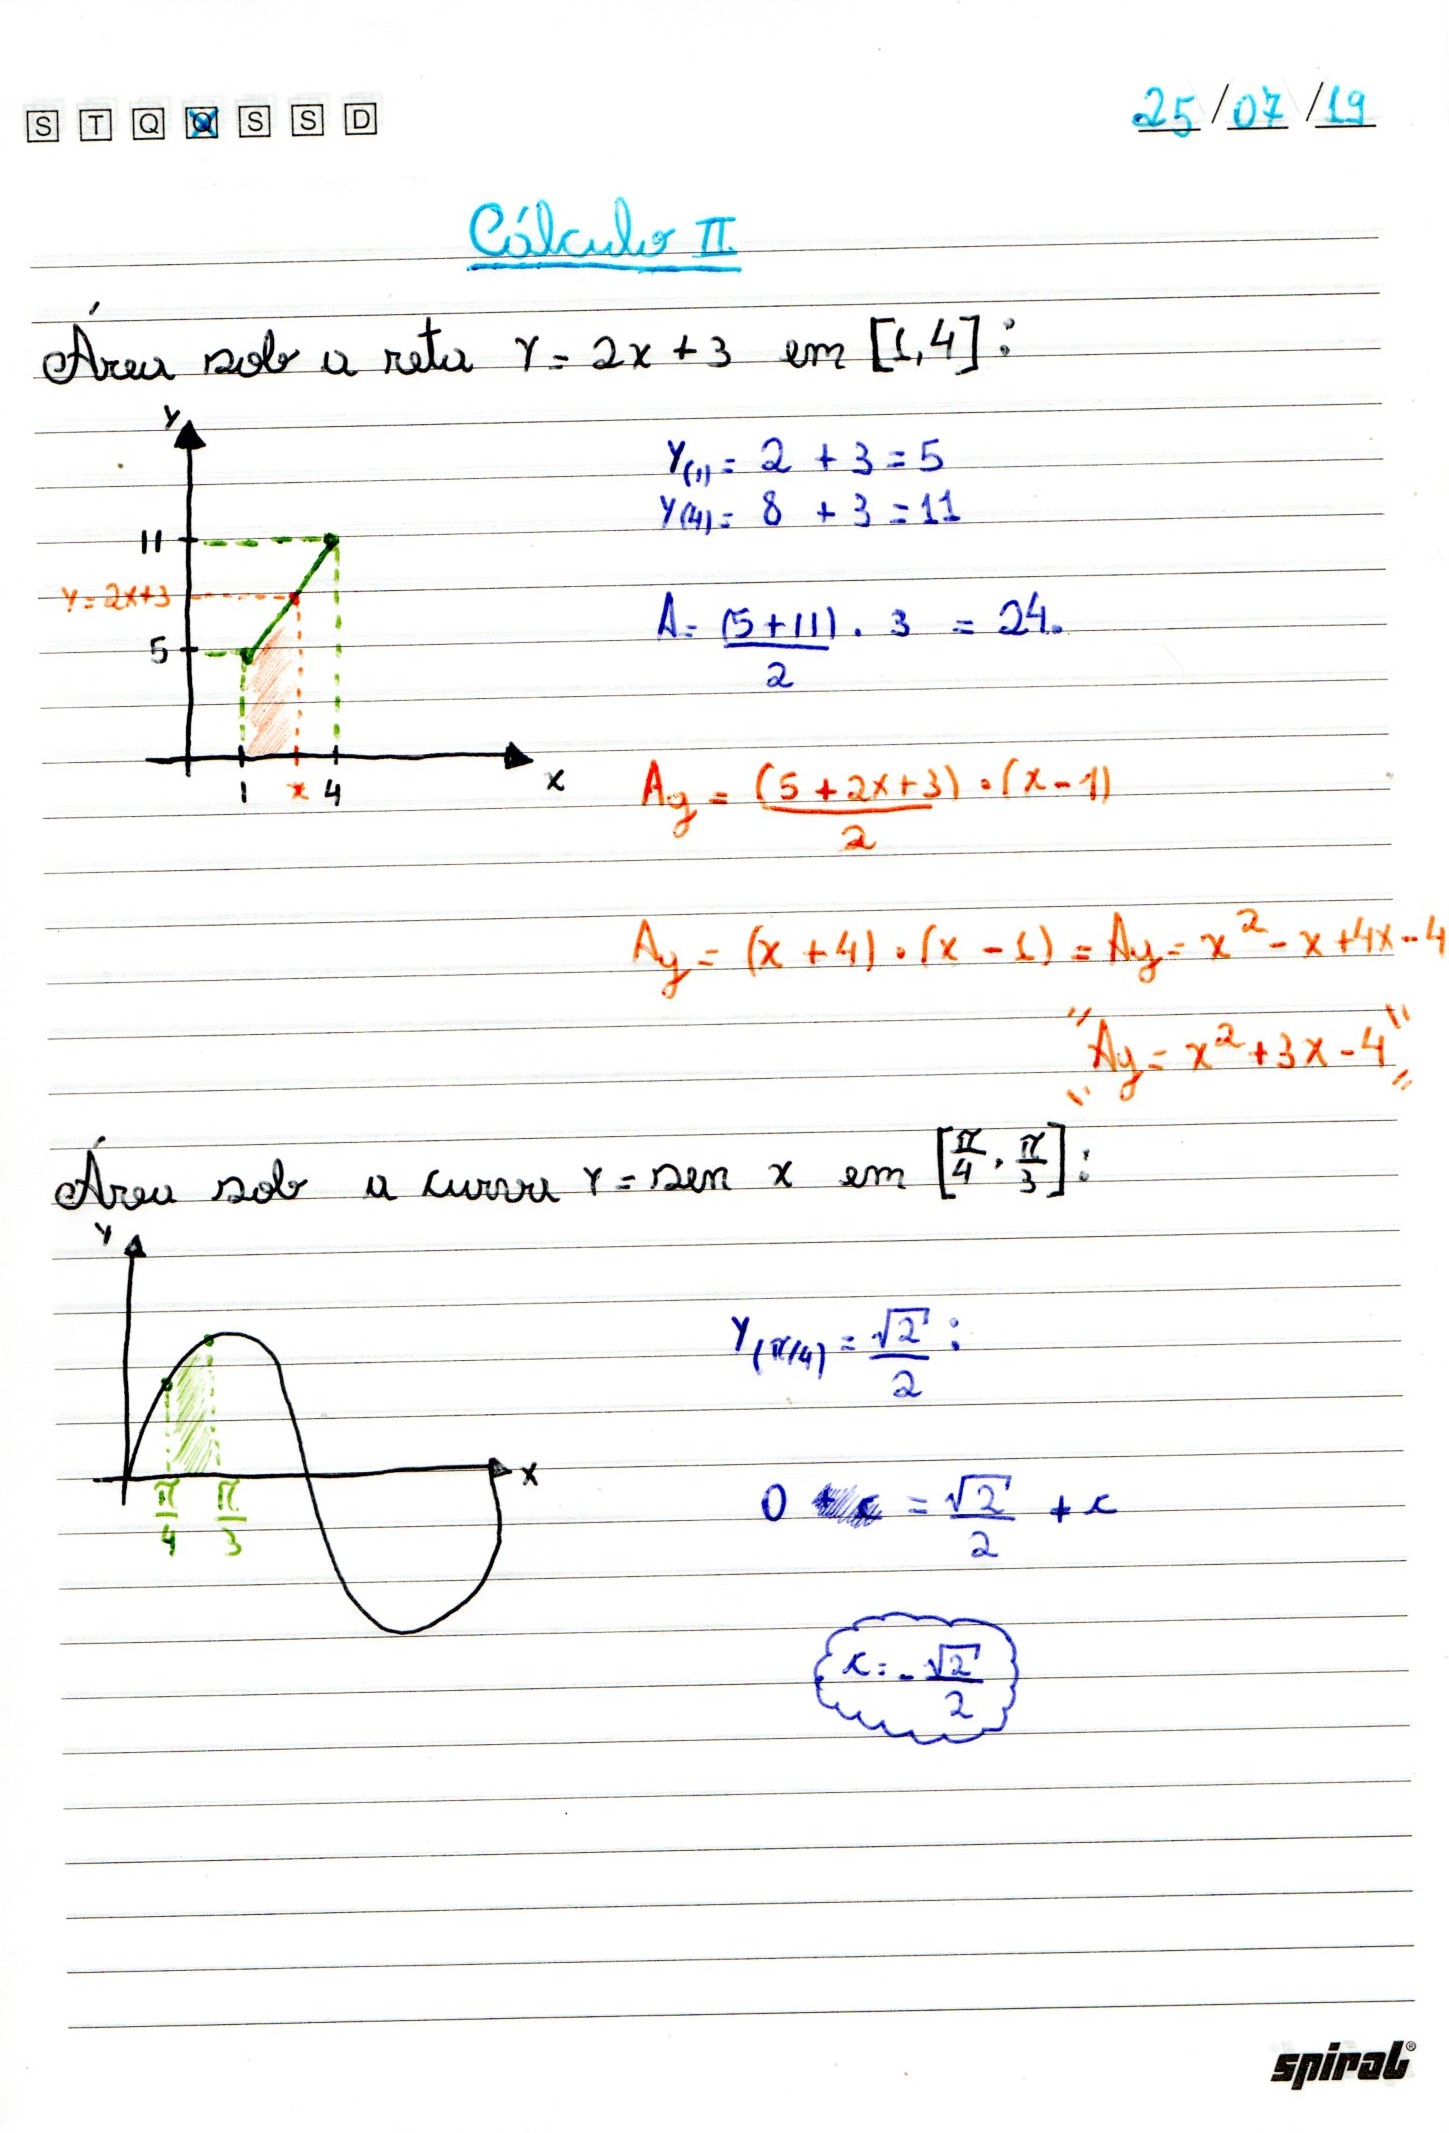 S T Q Q S S D 25/07/19
Cálculo II
Área sob a reta Y = 2x + 3 em [1,4]:
Y
Y(1) = 2 + 3 = 5
Y(4) = 8 + 3 = 11
11
Y = 2x+3
A = (5+11)/2 . 3 = 24.
5
1 x 4 x
Ay = (5 + 2x + 3)/2 . (x - 1)
Ay = (x + 4) . (x - 1) = Ay = x² - x + 4x - 4
"Ay = x² + 3x - 4"
Área sob a curva Y = sen x em [π/4, π/3]:
Y
Y(π/4) = √2/2 :
x
π/4 π/3
0 = √2/2 + c
c = -√2/2
spiral®